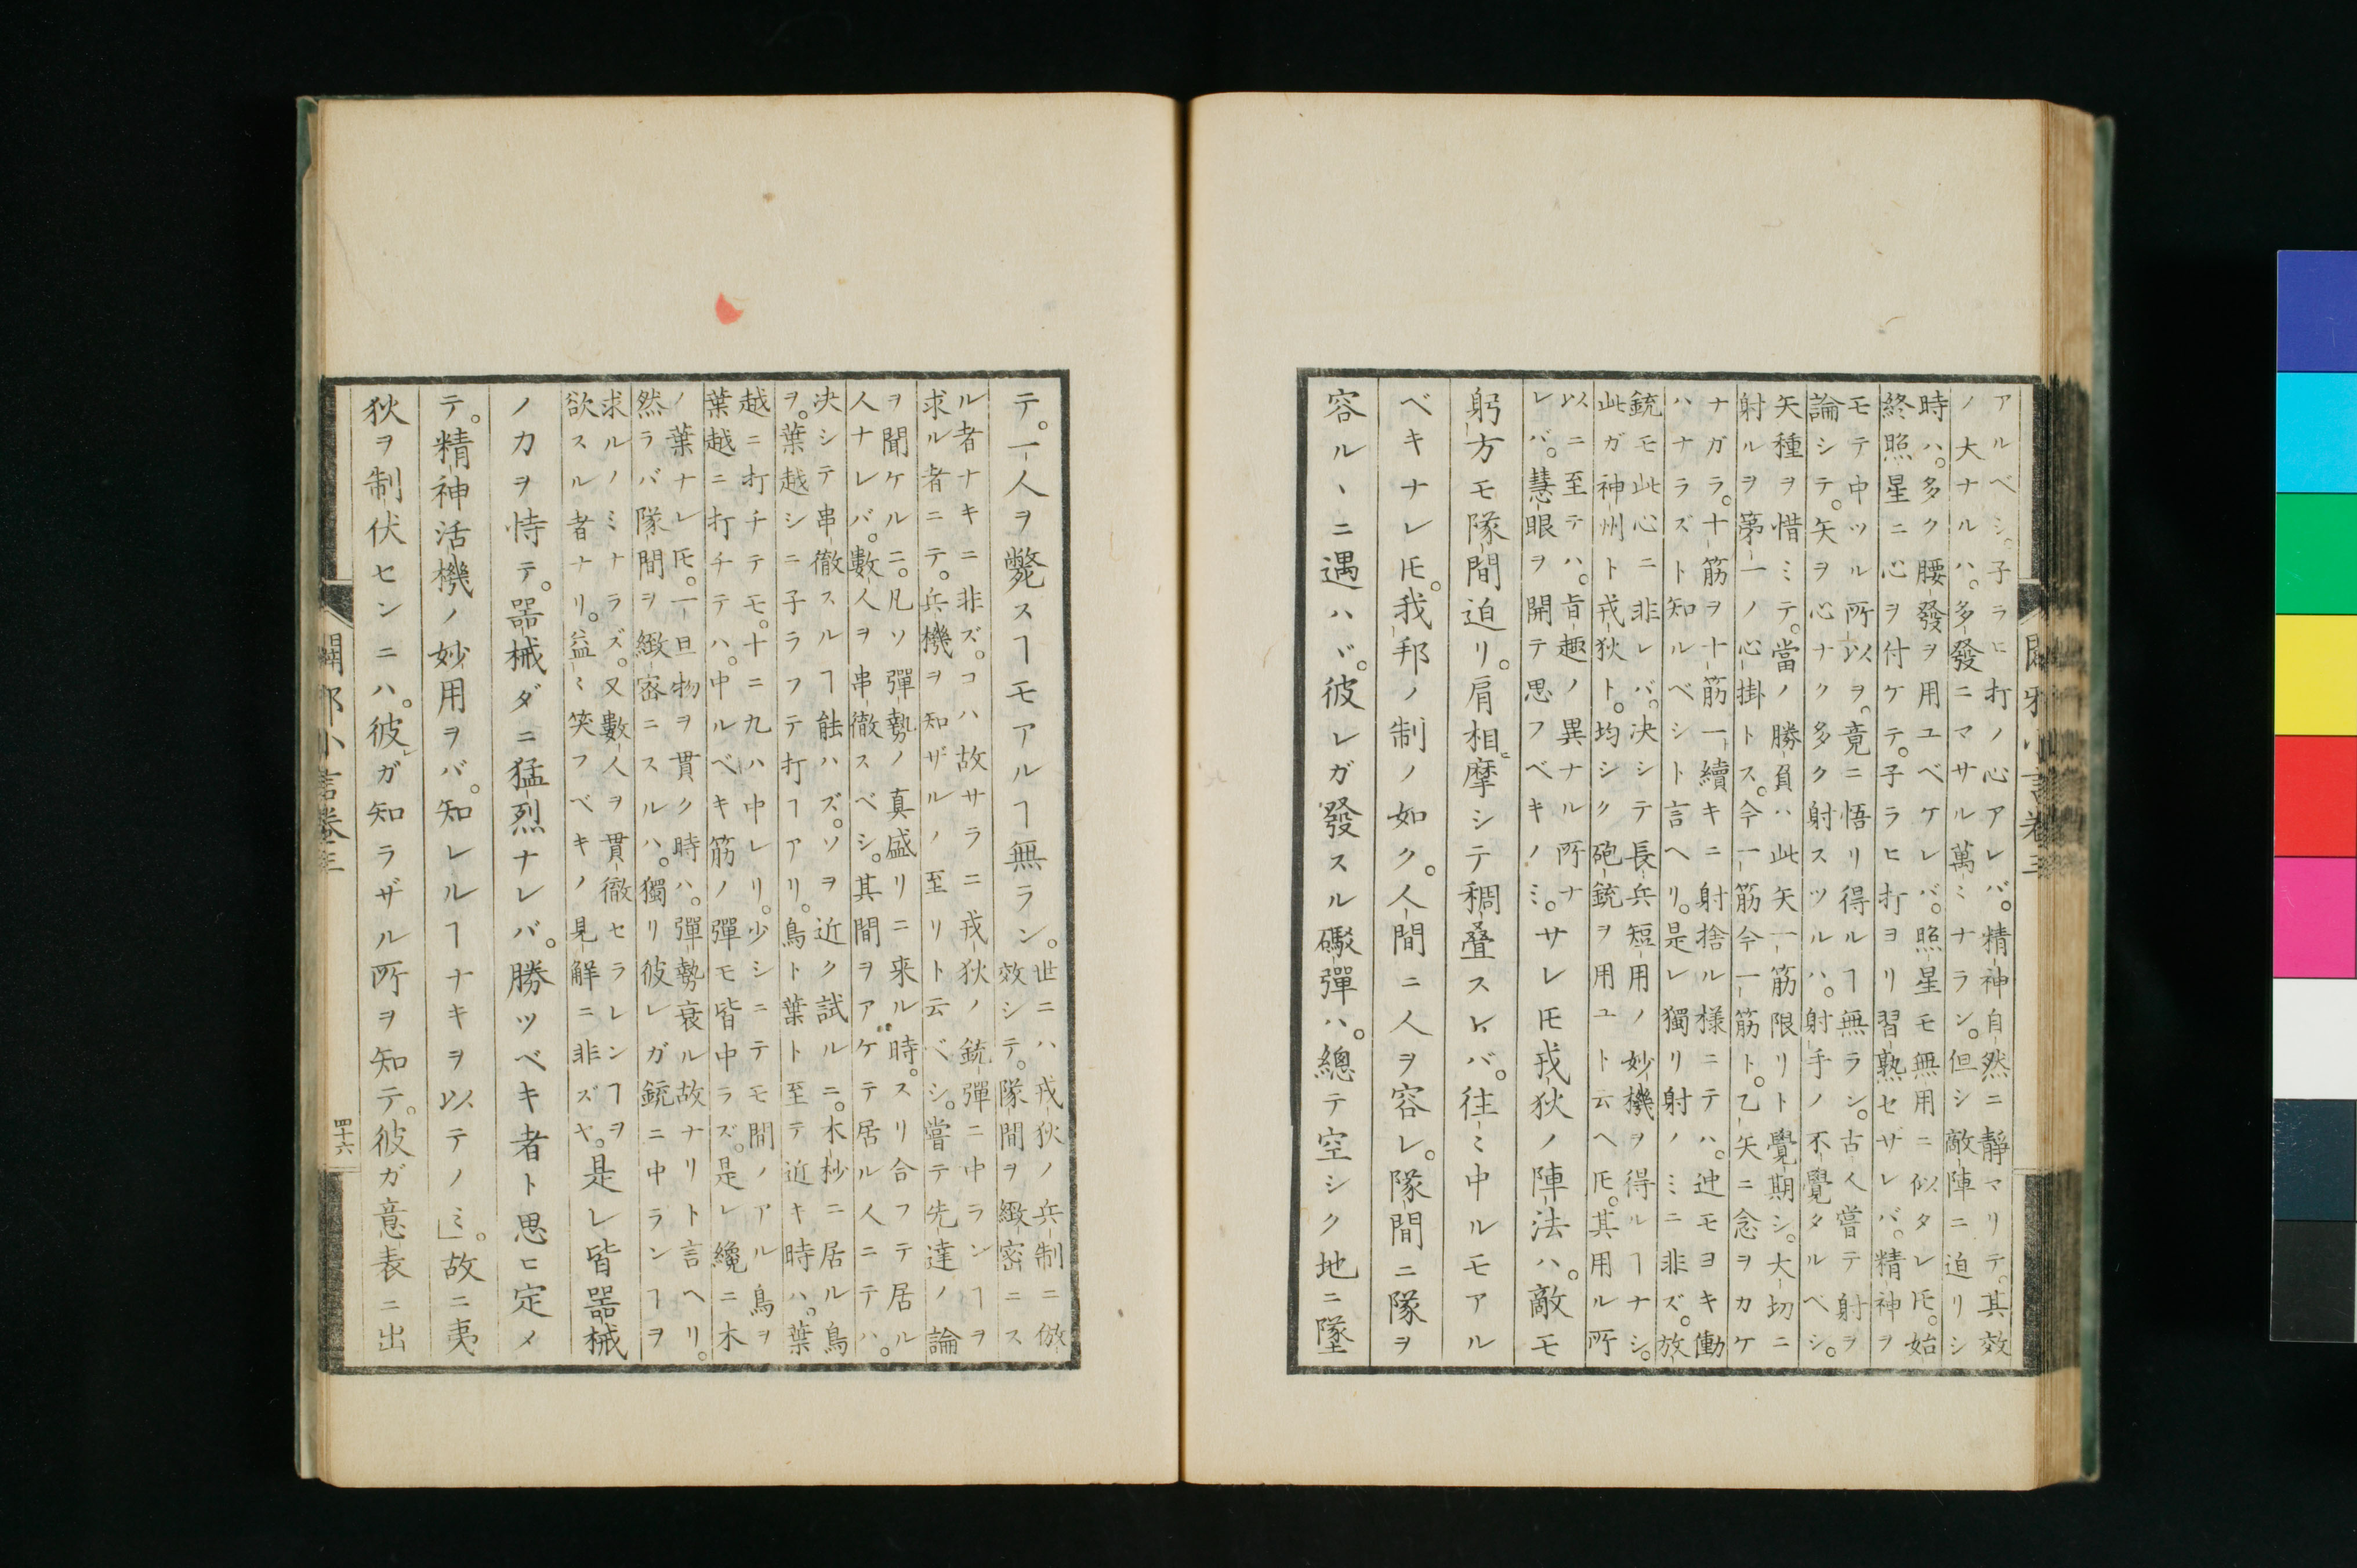 アルベシ。子ラヒ打ノ心アレバ。精神自然ニ靜マリテ。其效
ノ大ナルハ。多發ニマサル萬ミナラン。但シ敵陣ニ迫リシ
時ハ。多ク腰發ヲ用ユベケレバ。照星モ無用ニ似タレ𪜈。始
終照星ニ心ヲ付ケテ。子ラヒ打ヨリ習熟セザレバ。精神ヲ
モテ中ツル所以ヲ。竟ニ悟リ得ルヿ無ラン。古人嘗テ射ヲ
論シテ。矢ヲ心ナク多ク射スツルハ。射手ノ不覺タルベシ。
矢種ヲ惜ミテ。當ノ勝負ハ此矢一筋限リト覺期シ。大切ニ
射ルヲ第一ノ心掛トス。今一筋今一筋ト。乙矢ニ念ヲカケ
ナガラ。十筋ヲ十筋一續キニ射捨ル様ニテハ。迚モヨキ働
ハナラズト知ルベシト言ヘリ。是レ獨リ射ノミニ非ズ。放
銃モ此心ニ非レバ。决シテ長兵短用ノ妙機ヲ得ルヿナシ。
此ガ神州ト戎狄ト。均シク砲銃ヲ用ユト云ヘ𪜈。其用ル所
以ニ至テハ。旨趣ノ異ナル所ナ
レバ。慧眼ヲ開テ思フベキノミ。
サレ𪜈戎狄ノ陣法ハ。敵モ
躬方モ隊間迫リ。肩相摩シテ稠疊スレバ。往ミ中ルモアル
ベキナレ𪜈。我邦ノ制ノ如ク。人間ニ人ヲ容レ。隊間ニ隊ヲ
容ル丶ニ遇ハヾ。彼レガ發スル礮彈ハ。總テ空シク地ニ墜
テ。一人ヲ斃スヿモアルヿ無ラン。
世ニハ戎狄ノ兵制ニ倣
效シテ。隊間ヲ緻密ニス
ル者ナキニ非ズ。コハ故サラニ戎狄ノ銃彈ニ中ランヿヲ
求ル者ニテ。兵機ヲ知ザルノ至リト云ベシ。嘗テ先達ノ論
ヲ聞ケルニ。凡ソ彈勢ノ真盛リニ来ル時。スリ合フテ居ル
人ナレバ。數人ヲ串徹スベシ。其間ヲアケテ居ル人ニテハ。
决シテ串徹スルヿ能ハズ。ソヲ近ク試ルニ。木杪ニ居ル鳥
ヲ。葉越シニ子ラフテ打ヿアリ。鳥ト葉ト至テ近キ時ハ。葉
越ニ打チテモ。十ニ九ハ中レリ。少シニテモ間ノアル鳥ヲ
葉越ニ打チテハ。中ルベキ筋ノ彈モ皆中ラズ。是レ纔ニ木
ノ葉ナレ𪜈。一旦物ヲ貫ク時ハ。彈勢衰ル故ナリト言ヘリ。
然ラバ隊間ヲ緻密ニスルハ。獨リ彼レガ銃ニ中ランヿヲ
求ルノミナラズ。又數人ヲ貫徹セラレンヿヲ
欲スル者ナリ。益ミ笑フベキノ見解ニ非ズヤ。
是レ皆噐械
ノ力ヲ恃テ。噐械ダニ猛烈ナレバ。勝ツベキ者ト思ヒ定メ
テ。精神活機ノ妙用ヲバ。知レルヿナキヲ以テノミ」。故ニ夷
狄ヲ制伏センニハ。彼レガ知ラザル所ヲ知テ。彼ガ意表ニ出
閑邪小言卷三
四十六